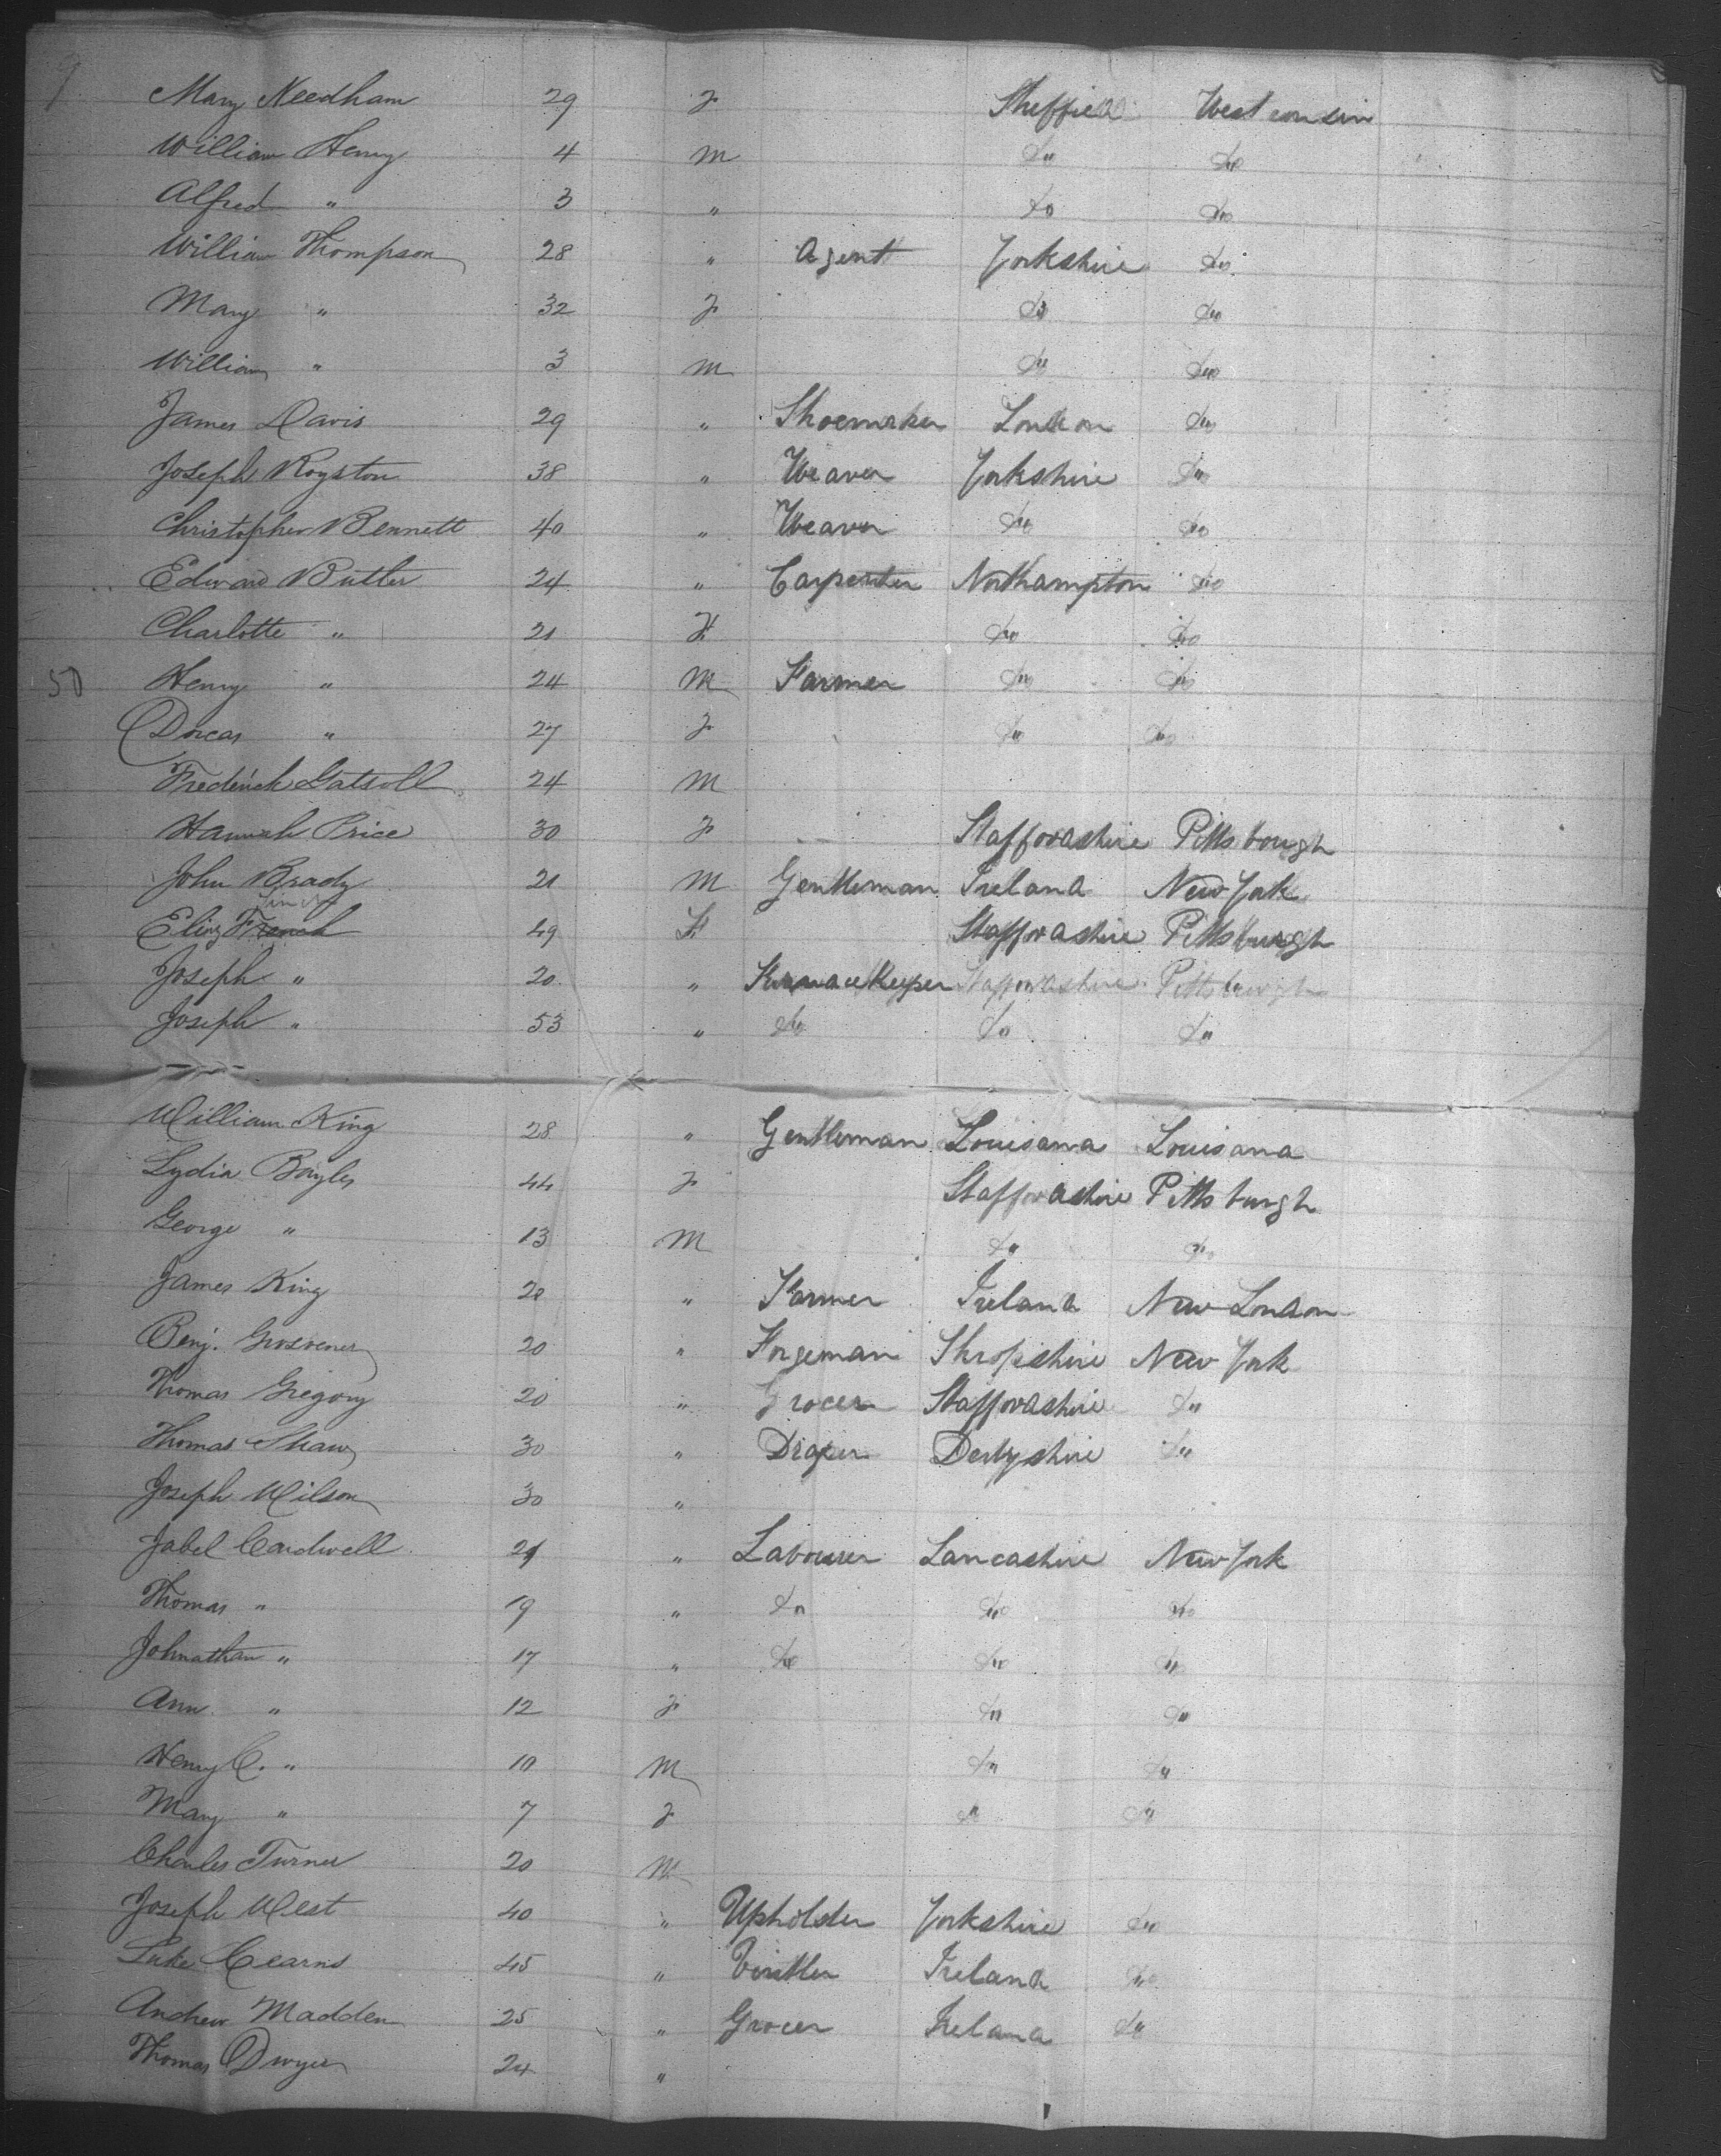 9
Mary Needham 29 F Sheffield West consin
William Henry 4 M Do Do
Alfred " 3 " Do Do
William Thompson 28 " Agent Yorkshire Do
Mary " 32 F Do Do
William " 3 M Do Do
James Davis 29 " Shoemaker London Do
Joseph Royston 38 " Weaver Yorkshire Do
Christopher Bennett 40 " Weaver Do Do
Edward Butler 24 " Carpenter Northampton Do
Charlotte " 21 F Do Do
50 Henry " 24 M Farmer Do Do
Dorcas " 27 F Do Do
Frederick 24 M
Hannah Price 30 F Staffordshire Pittsbough
John Brady 21 M Gentleman Ireland New York
Eliz French 49 F Staffordshire Pittsburgh
Joseph " 20 " Furnace Keeper Staffordshire Pittsburgh
Joseph " 53 " Do Do Do
William King 28 " Gentleman Louisana Louisana
Lydia Bayles 44 F Staffordshire Pittsburgh
George " 13 M Do Do
James King 20 " Farmer Ireland New London
Benj. Grosvener 20 " Forgeman Shropshire New York
Thomas Gregory 20 " Grocer Staffordshire Do
Thomas Shaw 30 " Draper Derbyshire Do
Joseph Wilson 30 "
Jabel Cardwell 21 " Labourer Lancashire New York
Thomas " 19 " Do Do Do
Johnathan " 17 " Do Do Do
Ann " 12 F Do Do
Henry C. " 10 M Do Do
Mary " 7 F Do Do
Charles Turner 20 M
Joseph West 40 " Upholder Yorkshire Do
Luke Cearns 45 " Vintler Ireland Do
Andrew Madden 25 " Grocer Ireland Do
Thomas Dwyer 24 "